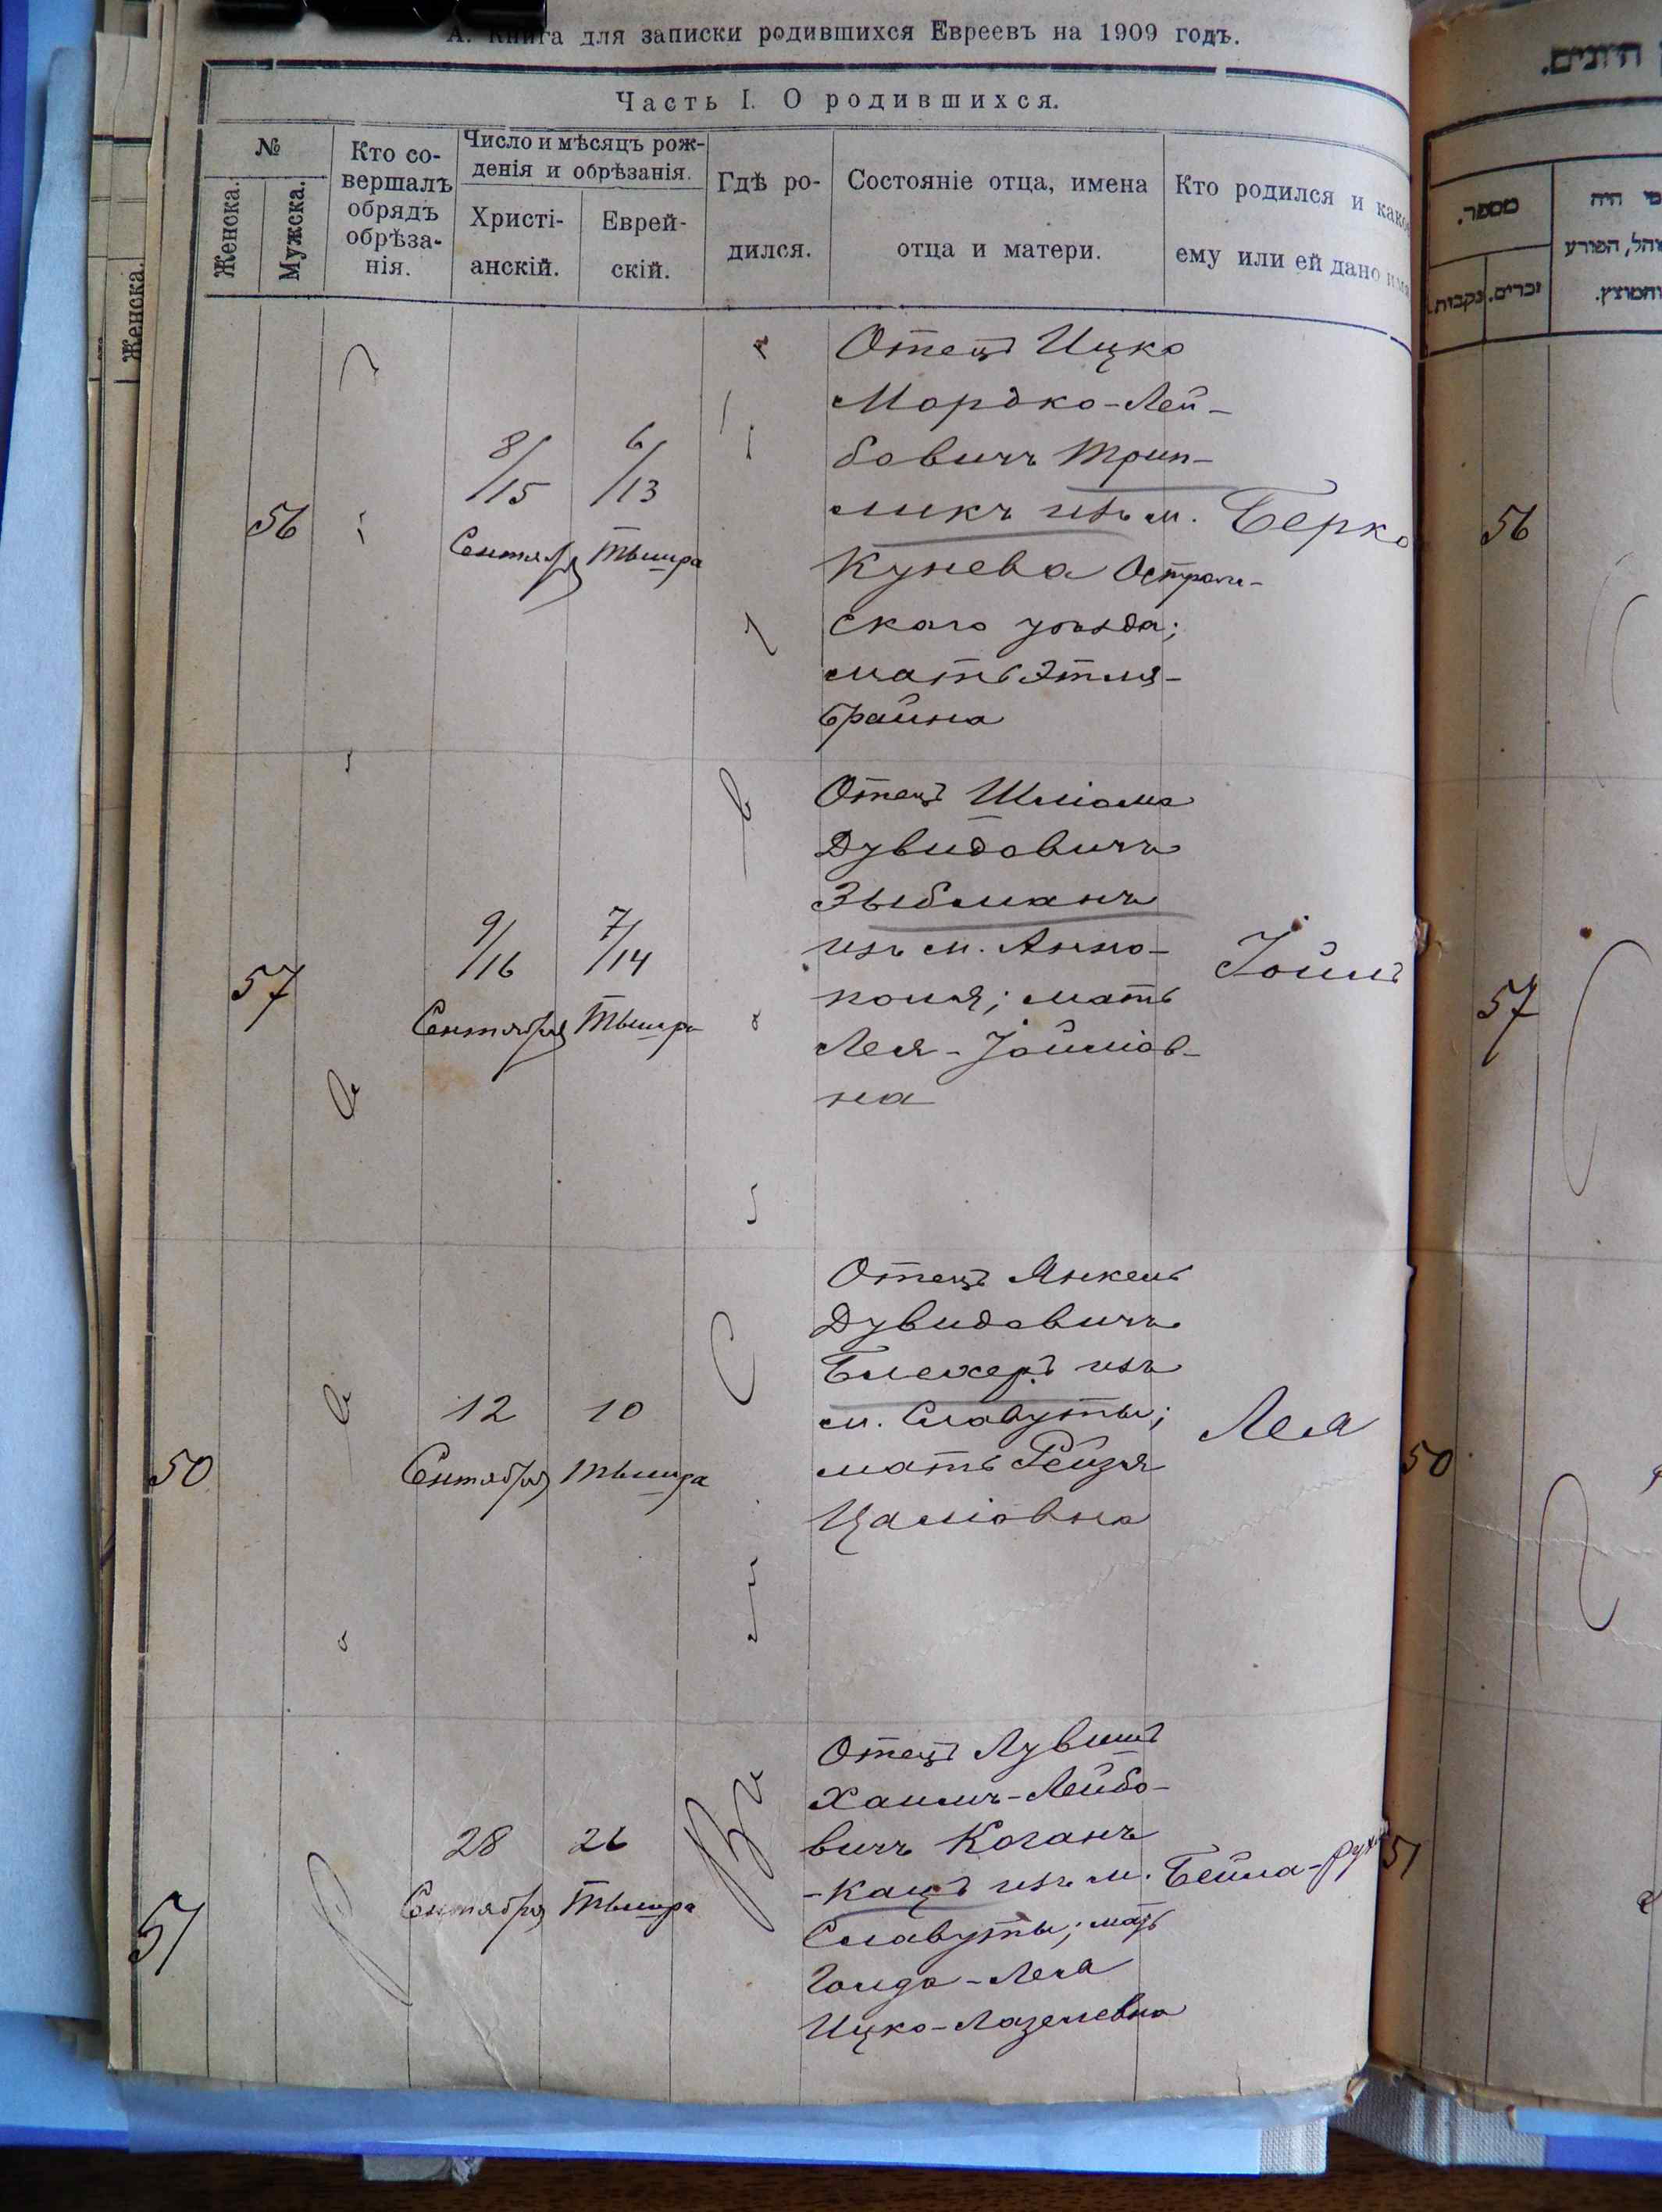 А. Книга для записки родившихся Евреевъ на 1909 годъ.
Часть I. О родившихся.
№
Женска.
Мужска.
Кто со-
вершалъ
обрядъ
обрѣза-
нія.
Число и мѣсяцъ рож-
денія и обрѣзанія.
Христі-
анскій.
Еврей-
скій.
Гдѣ ро-
дился.
Состояніе отца, имена
отца и матери.
Кто родился и како
ему или ей дано имя
Женска.
56
8/15
Сентября
6/13
Тышра
Отецъ Ицко
Мордко-Лей-
бовичъ Трип-
ликъ изъ м.
Кунева Острож-
скаго уѣзда;
мать Этля-
Брайна
Берко
57
9/16
Сентября
7/14
Тышра
Отецъ Шліома
Дувидовичъ
Зыбманъ
изъ м. Анно-
поля; мать
Лея-Іойліов-
на
Іойлъ
50
12
Сентября
10
Тышра
Отецъ Янкель
Дувидовичъ
Блехеръ изъ
м. Славуты;
мать Рейзя
Цаліовна
Лея
51
28
Сентября
26
Тышра
Отецъ
Хаимъ-Лейбо-
вичъ Коганъ
-Кацъ изъ м.
Славуты; мать
Голда-Лея
Ицко-Лазелевна
Бейла-
היונים.
מספר.
זכרים.
נקבות.
מי היה
המוהל, הפורע
והמוצץ.
56
57
50
51